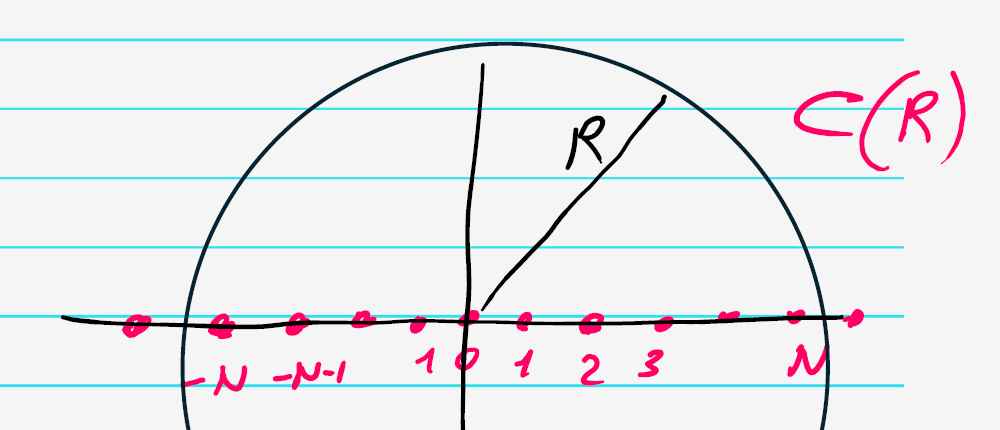 C(R)
R
-N -N-1 1 0 1 2 3 N